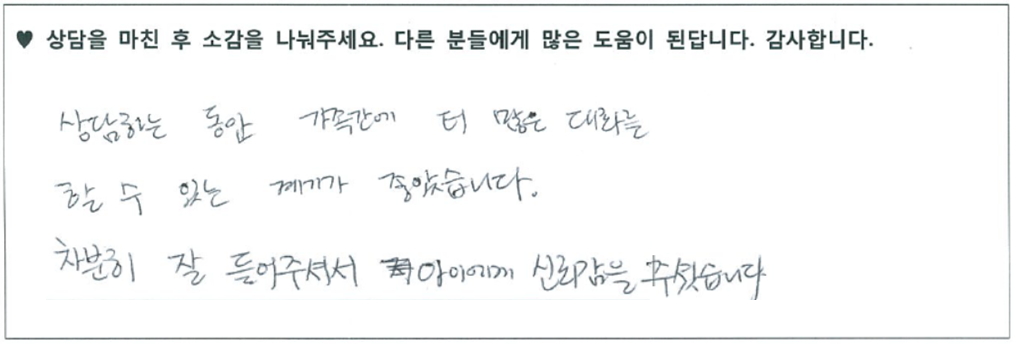 ♥ 상담을 마친 후 소감을 나눠주세요. 다른 분들에게 많은 도움이 된답니다. 감사합니다.
상담하는 동안 가족간에 더 많은 대화를
할 수 있는 계기가 좋았습니다.
차분히 잘 들어주셔서 아이에게 신뢰감을 주셨습니다